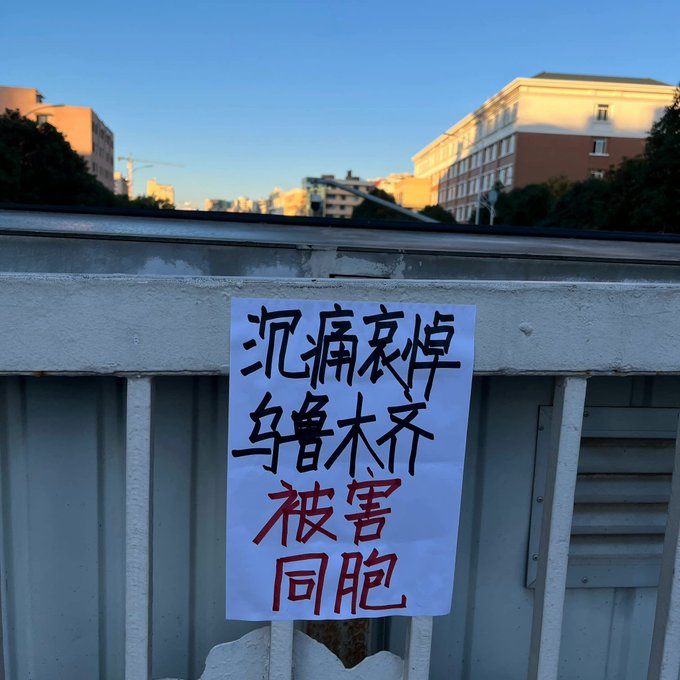 沉痛哀悼
乌鲁木齐
被害
同胞